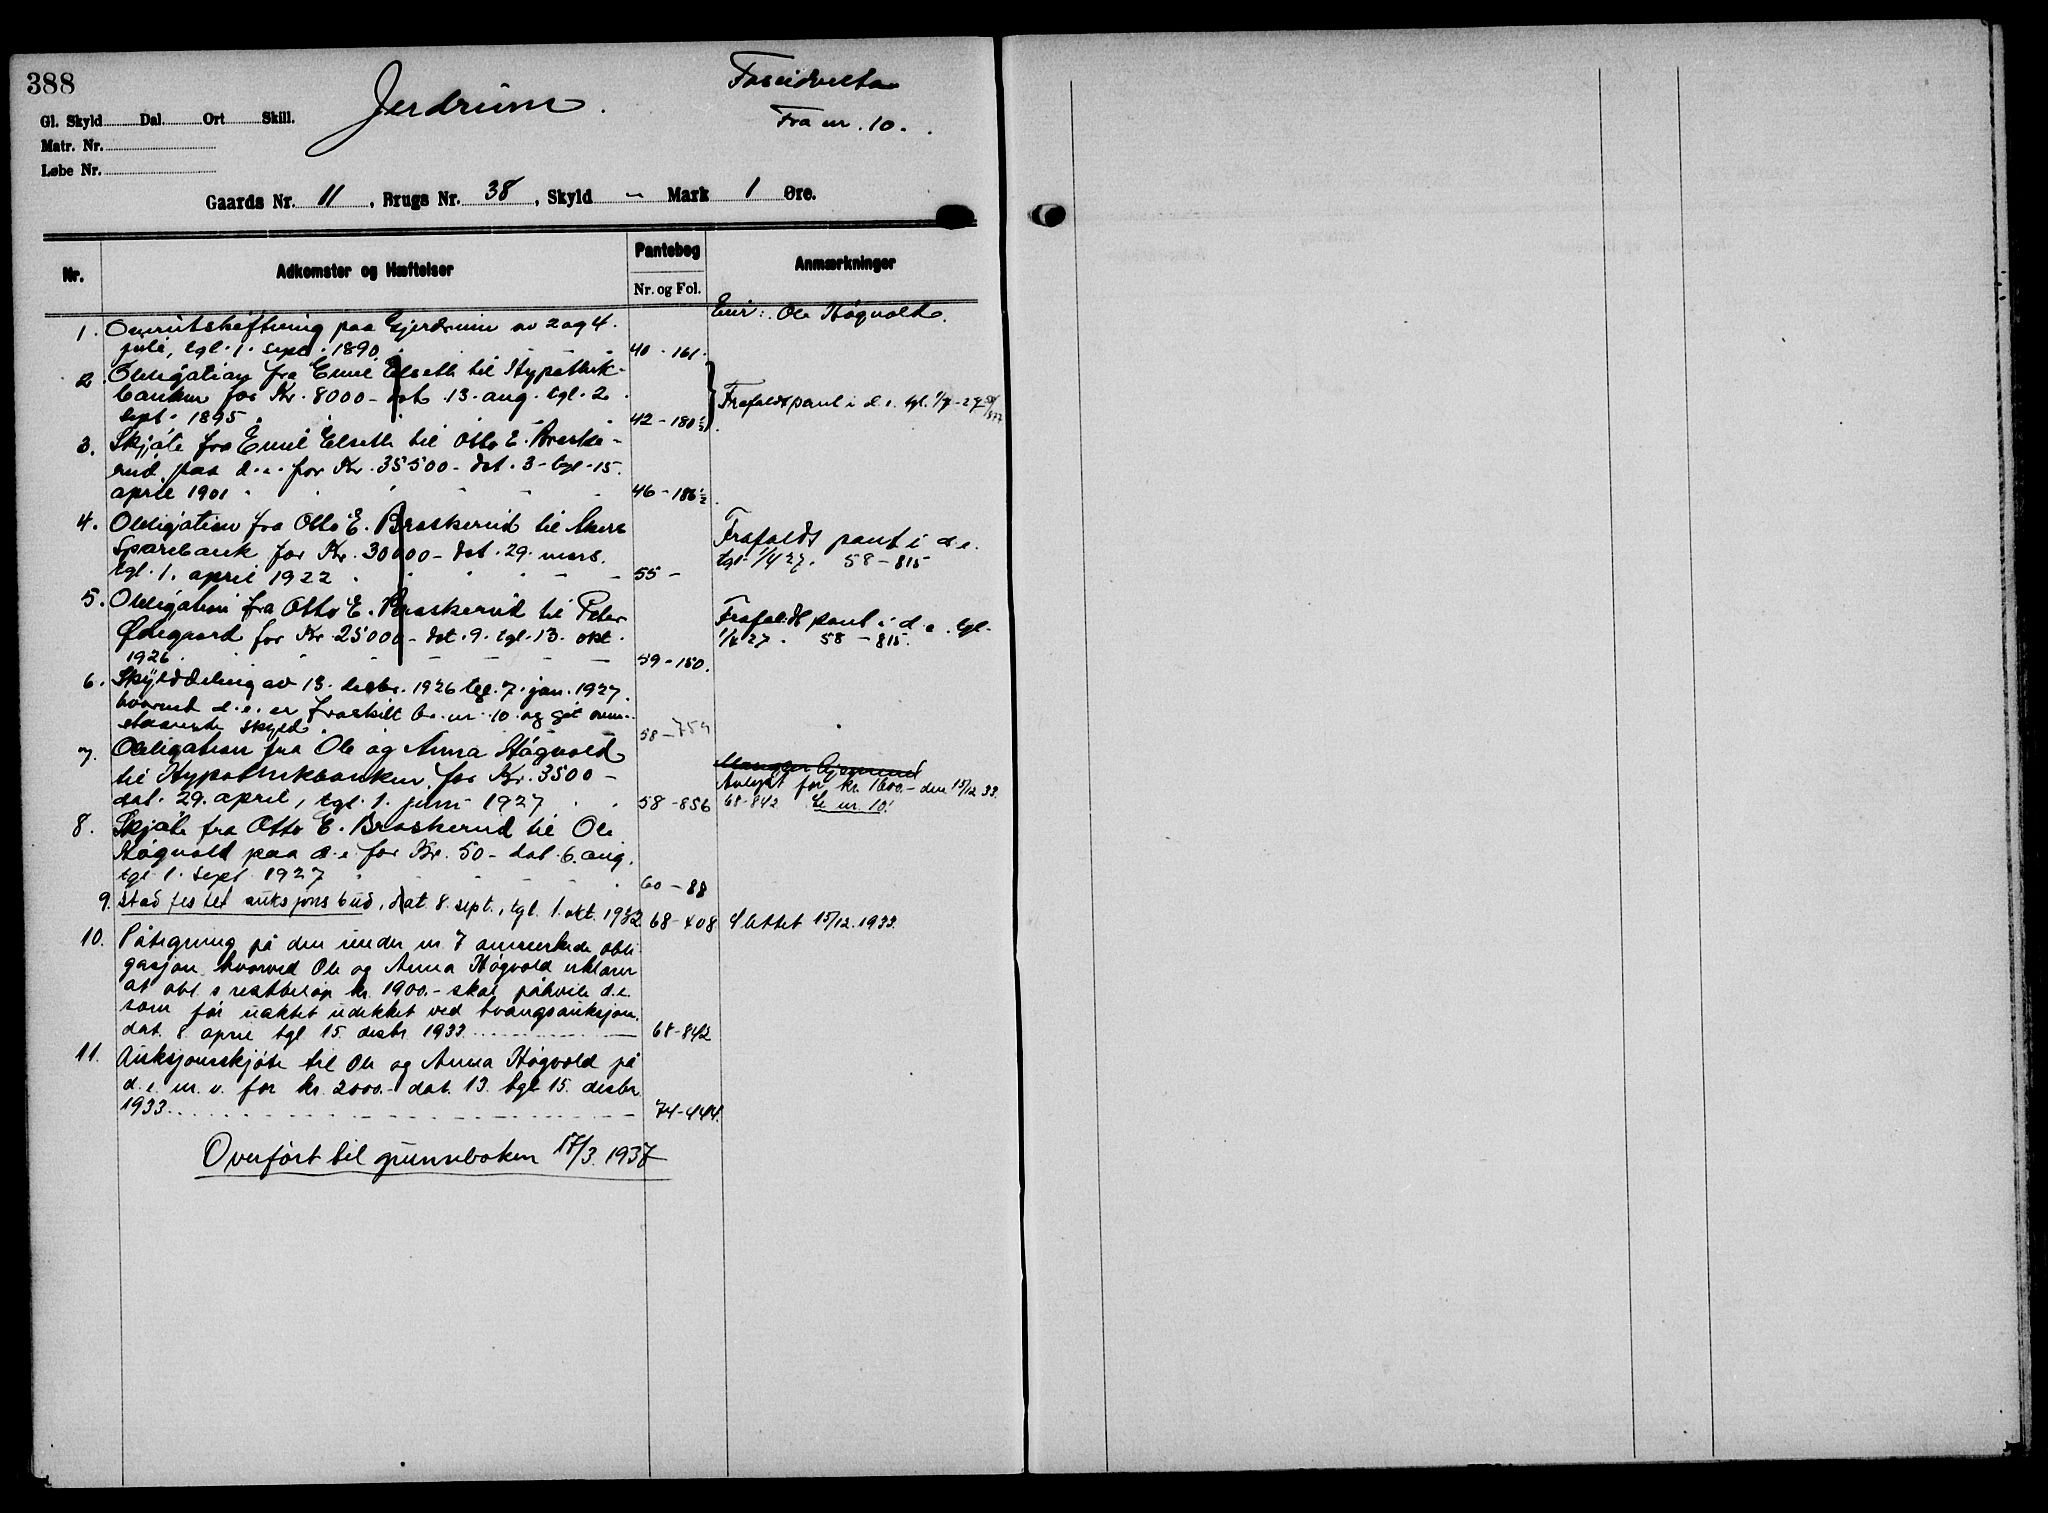 388
Jerdrum.
Fra nr. 10.
Gl. Skyld Dal. Ort Skill.
Matr. Nr.
Løbe Nr.
Gaards Nr. 11, Brugs Nr. 38, Skyld - Mark 1 Øre.
Nr. Adkomster og Hæftelser Pantebog Nr. og Fol. Anmærkninger
Eier: Ole Høgvold.
1. Omutskiftning paa Gjerdrum av 2 og 4.
juli, tgl. 1. sept. 1890. 40 - 161.
2. Obligation fra Emil Elseth til Hypothek-
banken for Kr. 8000 - dat. 13. aug. tgl. 2.
sept. 1895. 42 - 180½
Frafaldt pant i d.e. tgl.
3. Skjøte fra Emil Elseth til Otto E. Braske-
rud paa d.e. for Kr. 35500 - dat. 3 - tgl. 15.
april 1901 46 - 186½.
4. Obligation fra Otto E. Braskerud til Akers
Sparebank for Kr. 30000 - dat. 29. mars.
tgl. 1. april 1922. 55 -
Frafaldt pant i d.e.
tgl. 1/4 27. 58 - 815
5. Obligation fra Otto E. Braskerud til Peter
Ødegaard for Kr. 25000 - dat. 9. tgl. 13. okt.
1926. 59 - 150.
Frafaldt pant i d.e. tgl.
1/4 27. 58 - 815.
6. Skylddeling av 13. desbr. 1926 tgl. 7. jan. 1927.
hvorved d.e. er fraskilt br. nr. 10 og git oven-
staaende skyld. 58 - 759
7. Obligation fra Ole og Anna Høgvold
til Hypothekbanken for Kr. 3500 -
dat. 29. april, tgl. 1. juni 1927 58 - 856
Avlyst for kr. 1600.- den 15/12 33.
68-842 Se nr. 10!
8. Skjøte fra Otto E. Braskerud til Ole
Høgvold paa d.e. for Kr. 50 - dat. 6. aug.
tgl 1. sept 1927 60 - 88
9. Stadfestet auksjonsbud, dat. 8. sept., tgl. 1. okt. 1932 68 - 408 Slettet 15/12. 1933.
10. Påtegning på den under nr. 7 anmerkede obli-
gasjon hvorved Ole og Anna Høgvold erklærer
at obl.s restbeløp kr. 1900.- skal påhvile d.e.
som før uaktet udekket ved tvangsauksjon.
dat. 8 april tgl 15. desbr. 1933 68-842
11. Auksjonsskjøte til Ole og Anna Høgvold på
d.e. m.v. for kr. 2000.- dat. 13. tgl 15. desbr
1933. 74-444.
Overført til grunnboken 17/3. 1937